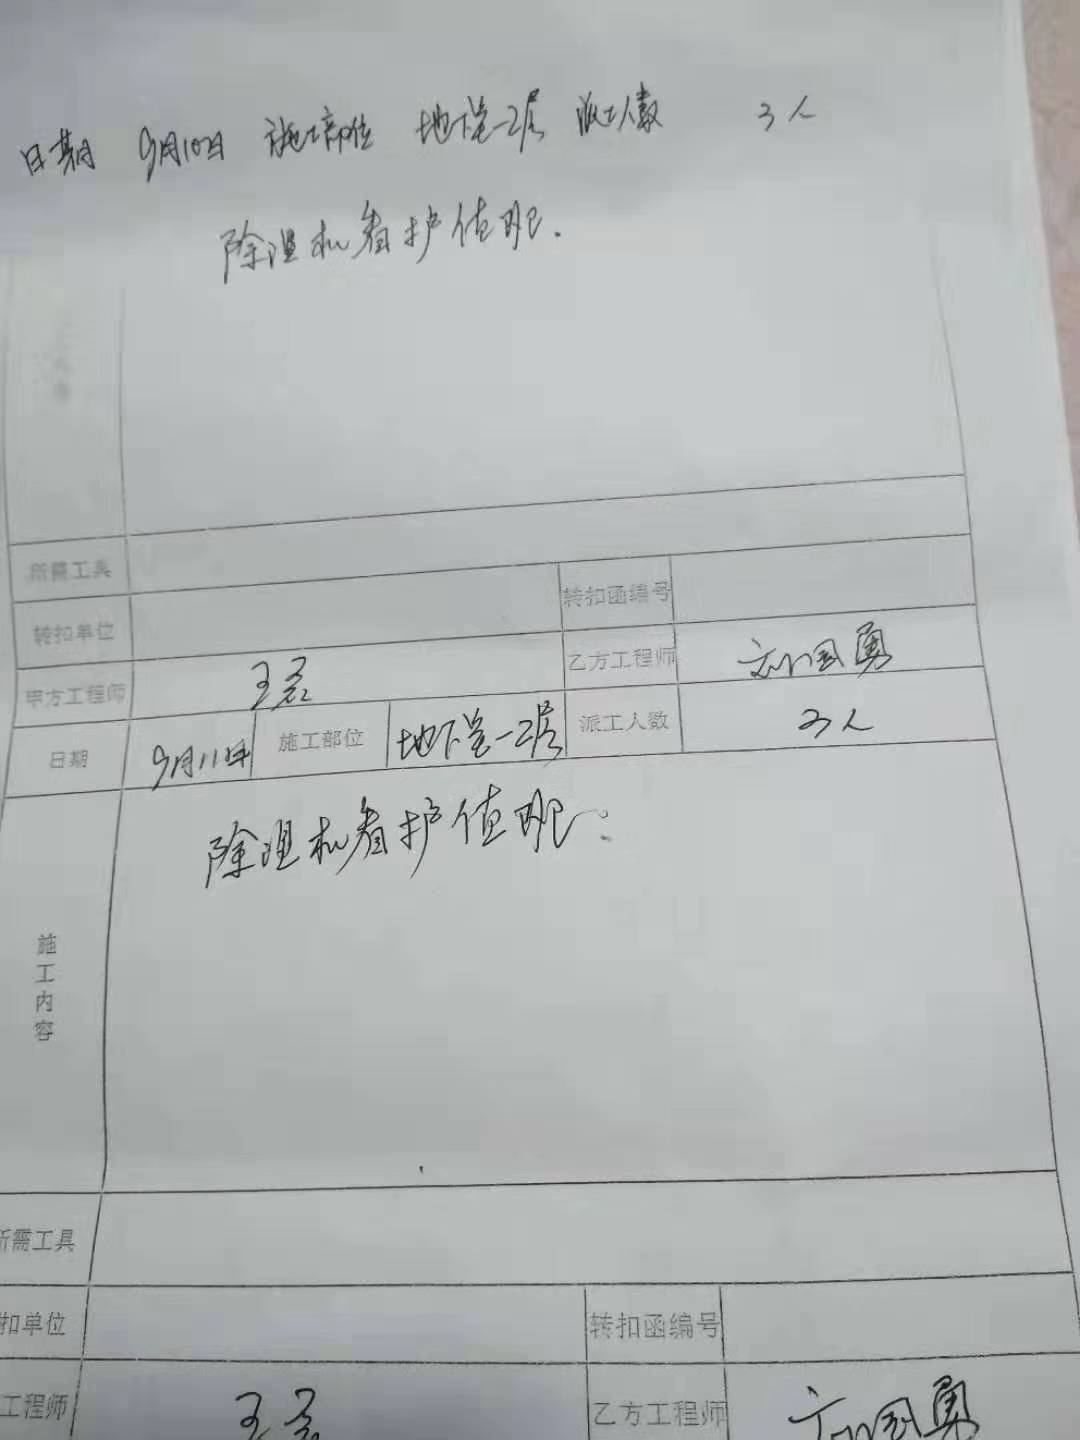 日期 9月10日 施工部位 地下室一2层 派工人数 3人
除湿机看护值班.
所需工具
转扣单位 转扣函编号
甲方工程师 乙方工程师 刘国勇
日期 9月11日 施工部位 地下室一2层 派工人数 3人
除湿机看护值班.
施工内容
所需工具
扣单位 转扣函编号
工程师 乙方工程师 刘国勇